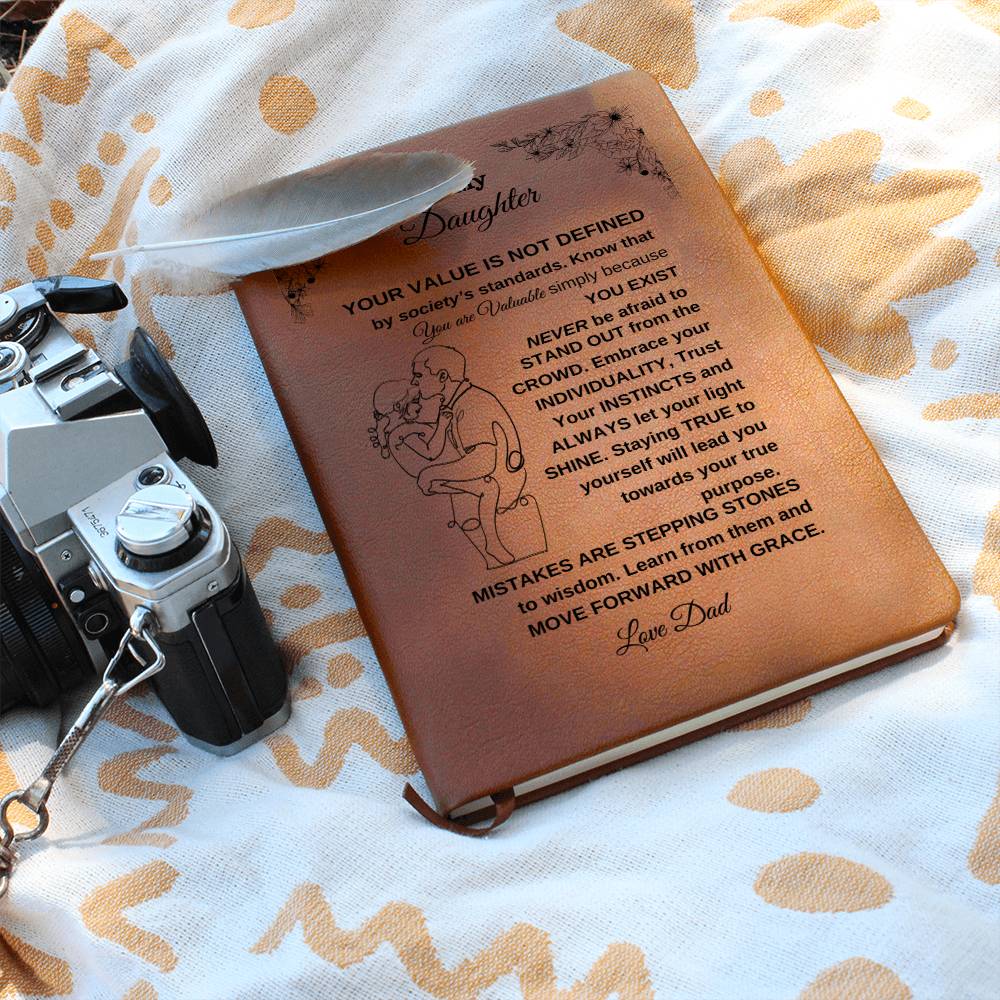 Daughter
YOUR VALUE IS NOT DEFINED
by society's standards. Know that
You are Valuable simply because
YOU EXIST
NEVER be afraid to
STAND OUT from the
CROWD. Embrace your
INDIVIDUALITY, Trust
Your INSTINCTS and
ALWAYS let your light
SHINE. Staying TRUE to
yourself will lead you
towards your true
purpose.
MISTAKES ARE STEPPING STONES
to wisdom. Learn from them and
MOVE FORWARD WITH GRACE.
Love Dad